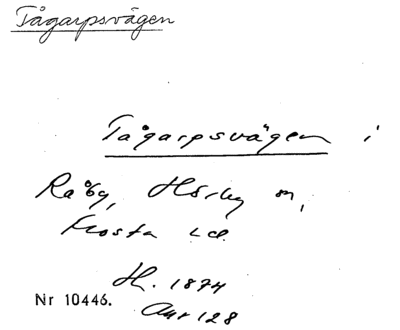 Tågarpsvägen
Tågarpsvägen i
Råby, Hörby m,
Frosta hd.
H. 1874
Nr 10446.
Anr 128